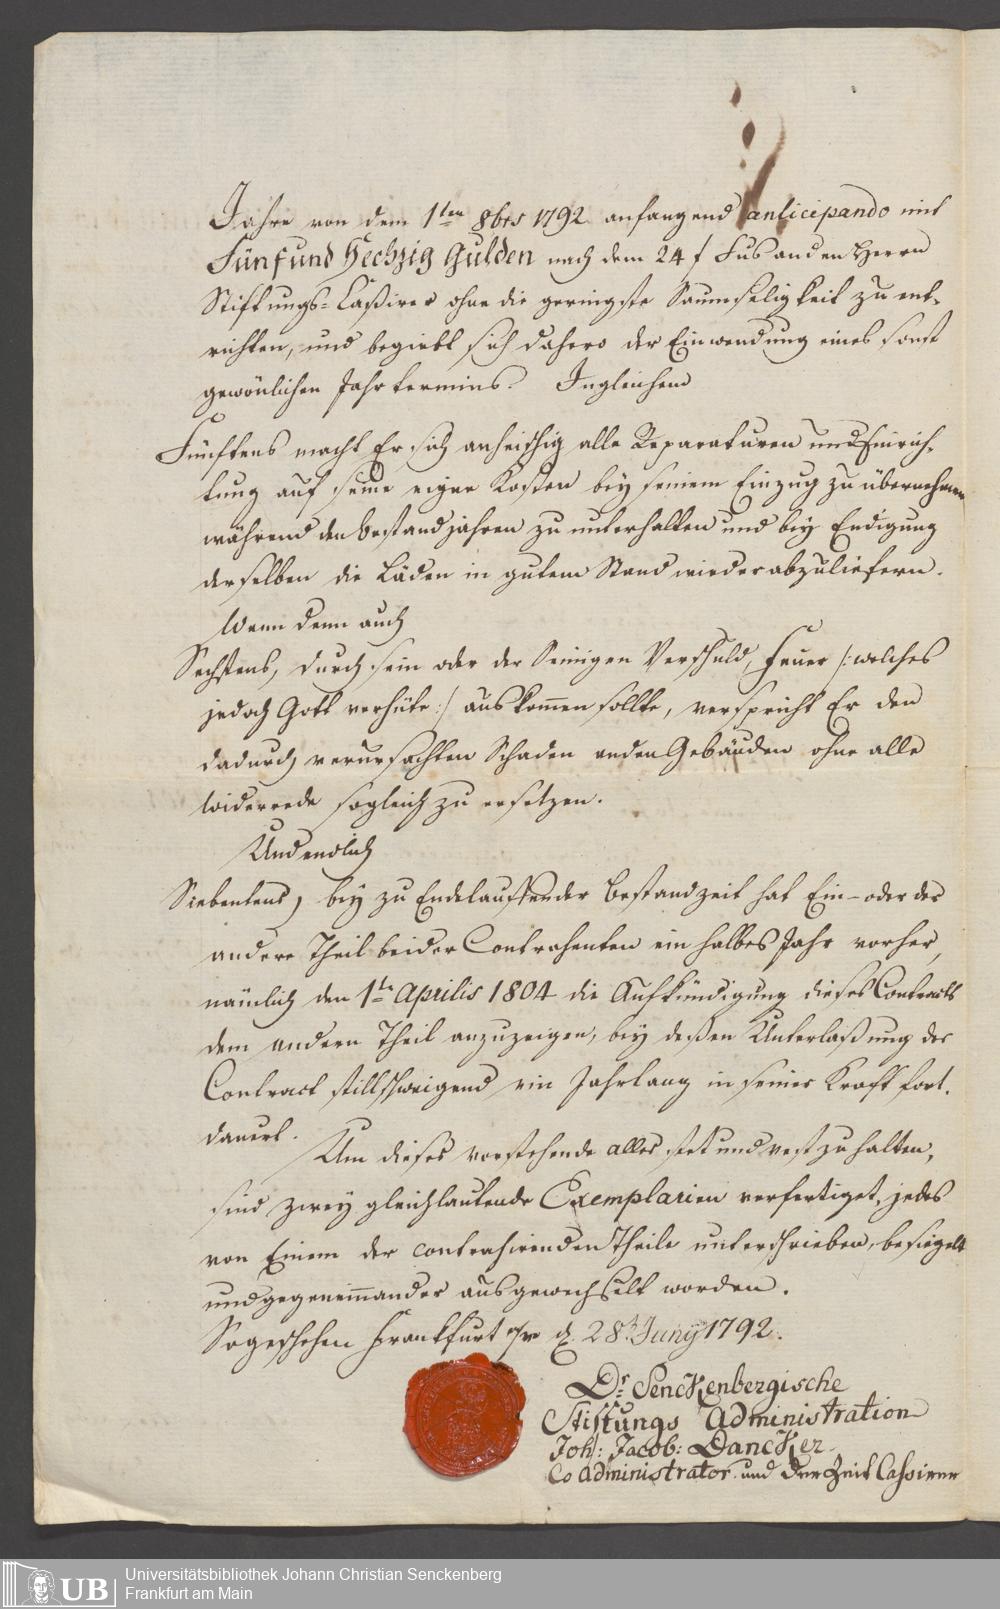 Jahre von dem 1ten 8bris 1792 anfangend anticipando mit
Fünfund Sechzig Gulden nach dem 24 f Fus an den Herrn
Stiftungs-Caßirer ohne die geringste Saumseligkeit zu ent-
richten, und begiebt sich dahero der Einwendung eines sonst
gewönlichen Jahrtermins. Ingleichem
Fünftens macht Er sich anheischig alle Reparaturen und Einrich-
tung auf seine eigne Kosten bey seinem Einzug zu übernehmen
während den Bestandjahren zu unterhalten und bey Endigung
derselben die Läden in gutem Stand wieder abzuliefern.
Wenn denn auch
Sechstens, durch sein oder der Seinigen Verschuld, Feuer /: welches
jedoch Gott verhüte :/ auskommen sollte, verspricht Er den
dadurch verursachten Schaden an den Gebäuden ohne alle
Widerrede sogleich zu ersetzen.
Und endlich
Siebentens, bey zu Endelauffender Bestandzeit hat Ein- oder der
andere Theil beider Contrahenten ein halbes Jahr vorher,
nämlich den 1ten Aprilis 1804 die Aufkündigung dieses Contracts
dem andern Theil anzuzeigen, bey deßen Unterlaßung der
Contract stillschweigend ein Jahrlang in seiner Kraft fort-
dauert.
Um dieses vorstehende alles stet und vest zu halten,
sind zwey gleichlautende Exemplarien verfertiget, jedes
von Einem der contrahirenden Theile unterschrieben, besiegelt
und gegeneinander ausgewechselt worden.
So geschehen Frankfurt a/m d. 28t Juny 1792.
Dr. Senckenbergische
Stiftungs Administration
Joh: Jacob: Dancker
Co Administrator und der Zeit Cassirer
UB
Universitätsbibliothek Johann Christian Senckenberg
Frankfurt am Main